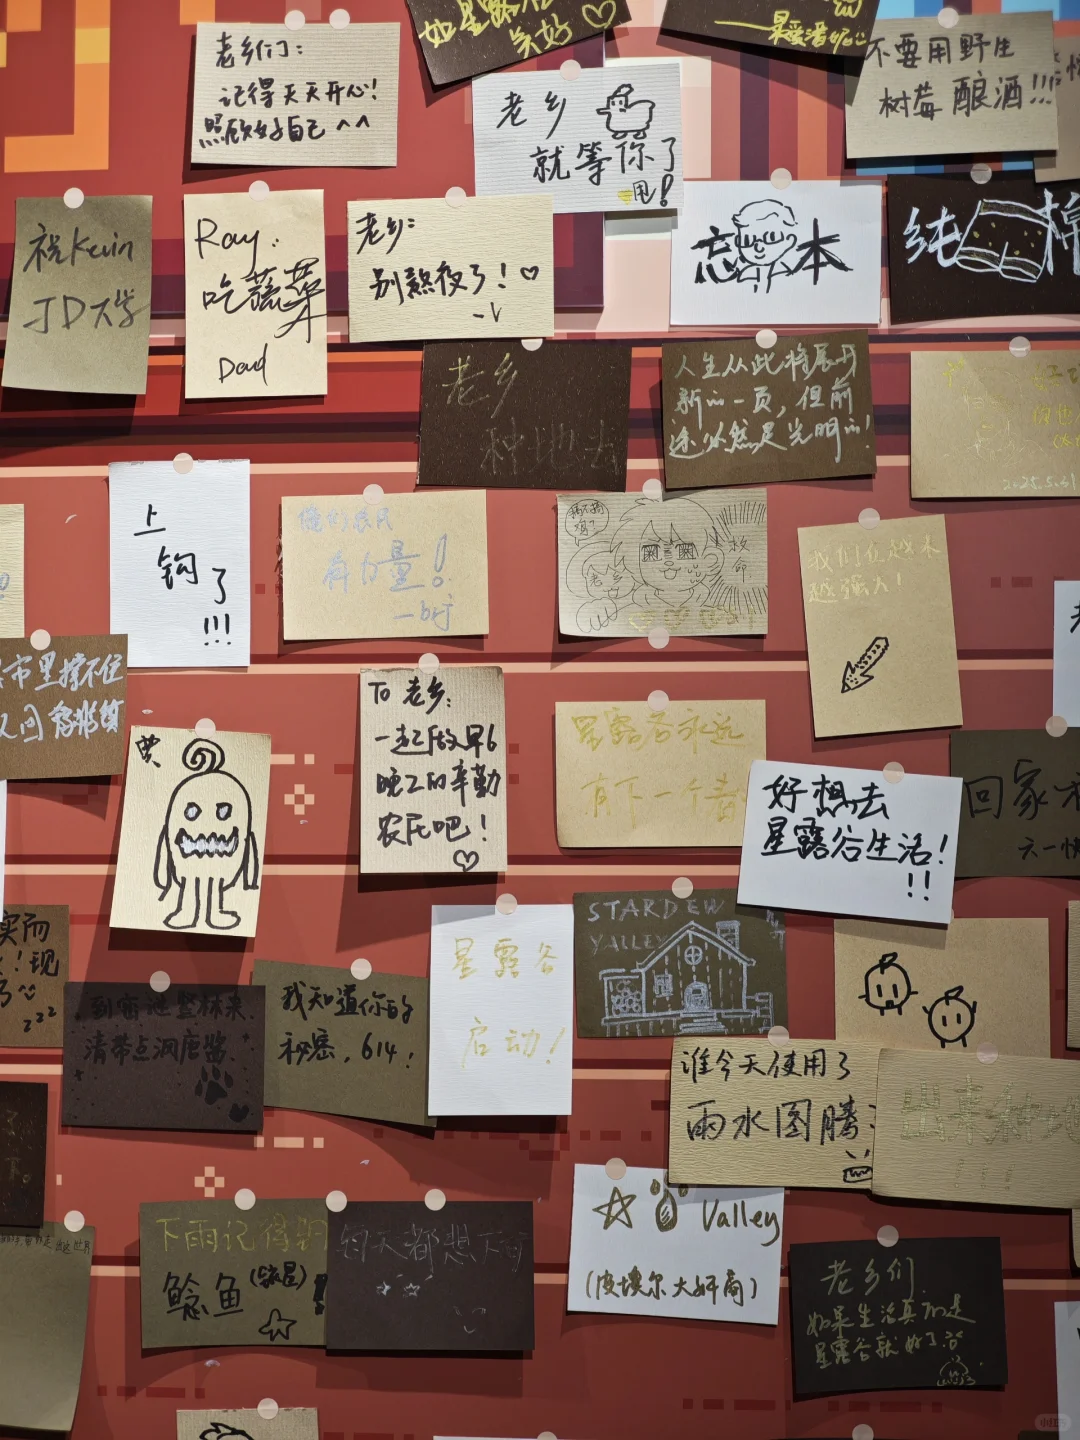 如星露谷
美好
老乡们:
记得天天开心!
照顾好自己^^
老乡
就等你了
甩!
不要用野生
树莓酿酒!!!
祝Kevin
JD大学
Ray:
吃蔬菜
Dad
老乡:
别熬夜了!♡
忘本
纯棉
老乡
种地去
人生从此将展开
新的一页,但前
途必然是光明的!
2025.5.31
上
钩
了
!!!
俺们农民
有力量!
救命
老乡
我们在越来
越强大!
市里撑不住
人回
贾
To 老乡:
一起做早6
晚2的辛勤
农民吧!
♡
星露谷永远
有下一个春
好想去
星露谷生活!
!!
回家
六一快
实而
!现
了
zzz
到窗边整林来
清带点洞唐酱.
我知道你的
秘密,614!
星露谷
启动!
STARDEW
VALLEY
谁今天使用了
雨水图腾?
出来种地
!!!
下雨记得钓
鲶鱼(铱星)!
每天都想下矿
☆ Valley
(皮埃尔大奸商)
老乡们
如果生活真的是
星露谷就好了
小红书